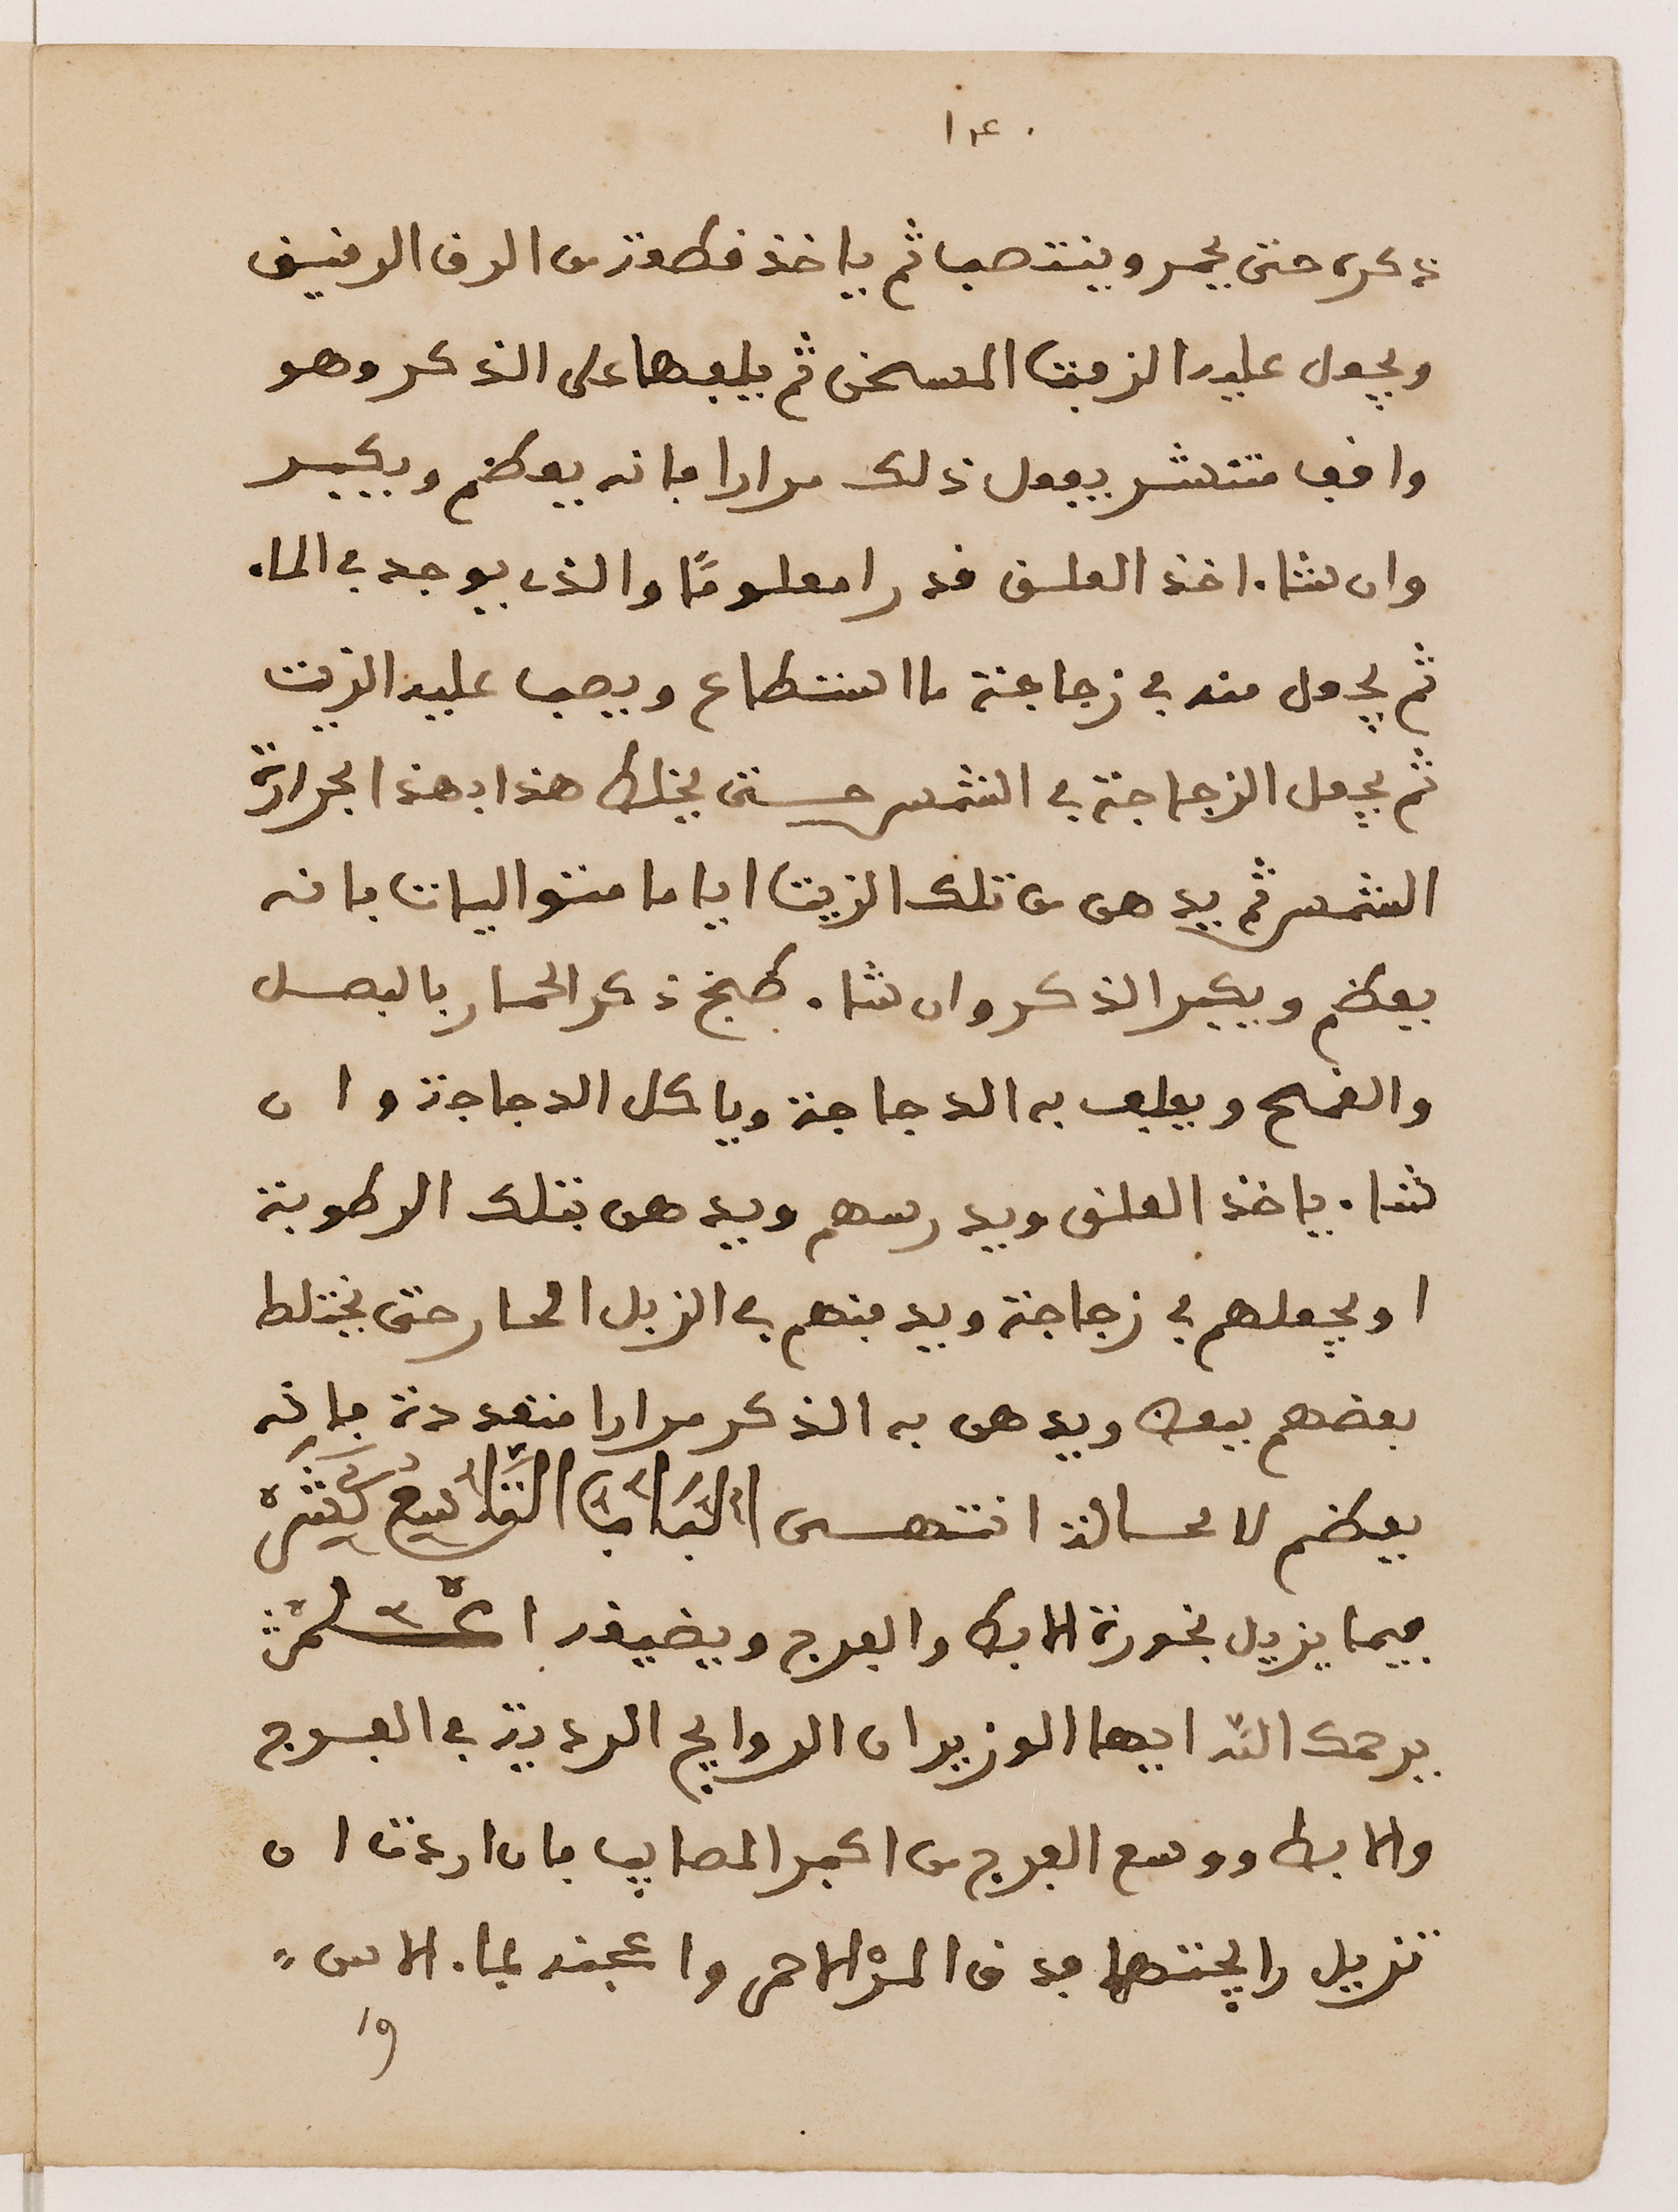 ١٤٠
ذكره حتى يحمر وينتصب ثم ياخذ قطعة من الرق الرقيق
ويجعل عليه الزفت المسخن ثم يلفها على الذكر وهو
واقف منتشر يفعل ذلك مرارا فانه يعظم ويكبر
وان شاء اخذ العلق قدرا معلومًا والذى يوجد في الماء
ثم يجعل منه في زجاجة ما استطاع ويصب عليه الزيت
ثم يجعل الزجاجة في الشمس حتى يخلط هذا بهذا بحرارة
الشمس ثم يدهن من تلك الزيت اياما متواليات فانه
يعظم ويكبر الذكر وان شاء طبخ ذكر الحمار بالبصل
والقمح ويعلف به الدجاجة وياكل الدجاجة وان
شاء ياخذ العلق ويدرسهم ويدهن بتلك الرطوبة
او يجعلهم في زجاجة ويدفنهم في الزبل الحار حتى يختلط
بعضهم ببعض ويدهن به الذكر مرارا متعددة فانه
يعظم لا محالة انتهى البَابُ التَّاسِعُ عَشَرَ
فيما يزيل بخورة الابط والفرج ويضيقه اعْلَمْ
يرحمك اللّه ايها الوزير ان الروايح الردية في الفرج
والابط ووسع الفرج من اكبر المصايب فان اردت ان
تزيل رايحتها فدق المرّ الاحمر واعجنه بماء الاس
و